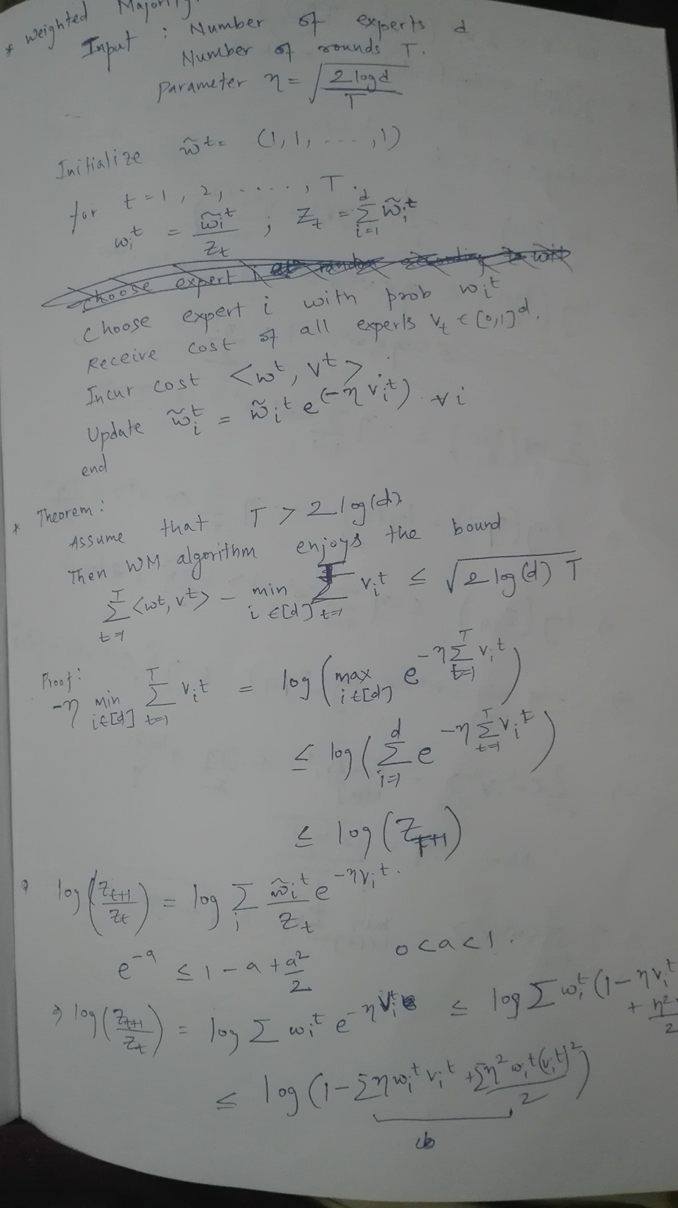 * Weighted Majority.
Input : Number of experts d
Number of rounds T.
Parameter η = √(2 log d / T)
Initialize w̃ᵗ = (1, 1, ....., 1)
for t = 1, 2, ....., T.
wᵢᵗ = w̃ᵢᵗ / Z_t ; Z_t = Σ_{i=1}^{d} w̃ᵢᵗ
Choose expert i with prob wᵢᵗ
Receive cost of all experts v_t ∈ [0,1]^d.
Incur cost <wᵗ, vᵗ>
Update w̃ᵢᵗ = w̃ᵢᵗ e^(-η vᵢᵗ) ∀i
end
* Theorem:
Assume that T > 2 log(d)
Then WM algorithm enjoys the bound
Σ_{t=1}^{T} <wᵗ, vᵗ> - min_{i∈[d]} Σ_{t=1}^{T} vᵢᵗ ≤ √(2 log(d) T)
Proof:
-η min_{i∈[d]} Σ_{t=1}^{T} vᵢᵗ = log( max_{i∈[d]} e^{-η Σ_{t=1}^{T} vᵢᵗ} )
≤ log( Σ_{i=1}^{d} e^{-η Σ_{t=1}^{T} vᵢᵗ} )
≤ log( Z_{T+1} )
log( Z_{t+1} / Z_t ) = log Σ_i (w̃ᵢᵗ / Z_t) e^{-η vᵢᵗ}.
e^{-a} ≤ 1 - a + a²/2 0 < a < 1.
⇒ log( Z_{t+1} / Z_t ) = log Σ wᵢᵗ e^{-η vᵢᵗ} ≤ log Σ wᵢᵗ (1 - η vᵢᵗ + η²/2
≤ log (1 - Σ η wᵢᵗ vᵢᵗ + Σ η² wᵢᵗ (vᵢᵗ)² / 2)